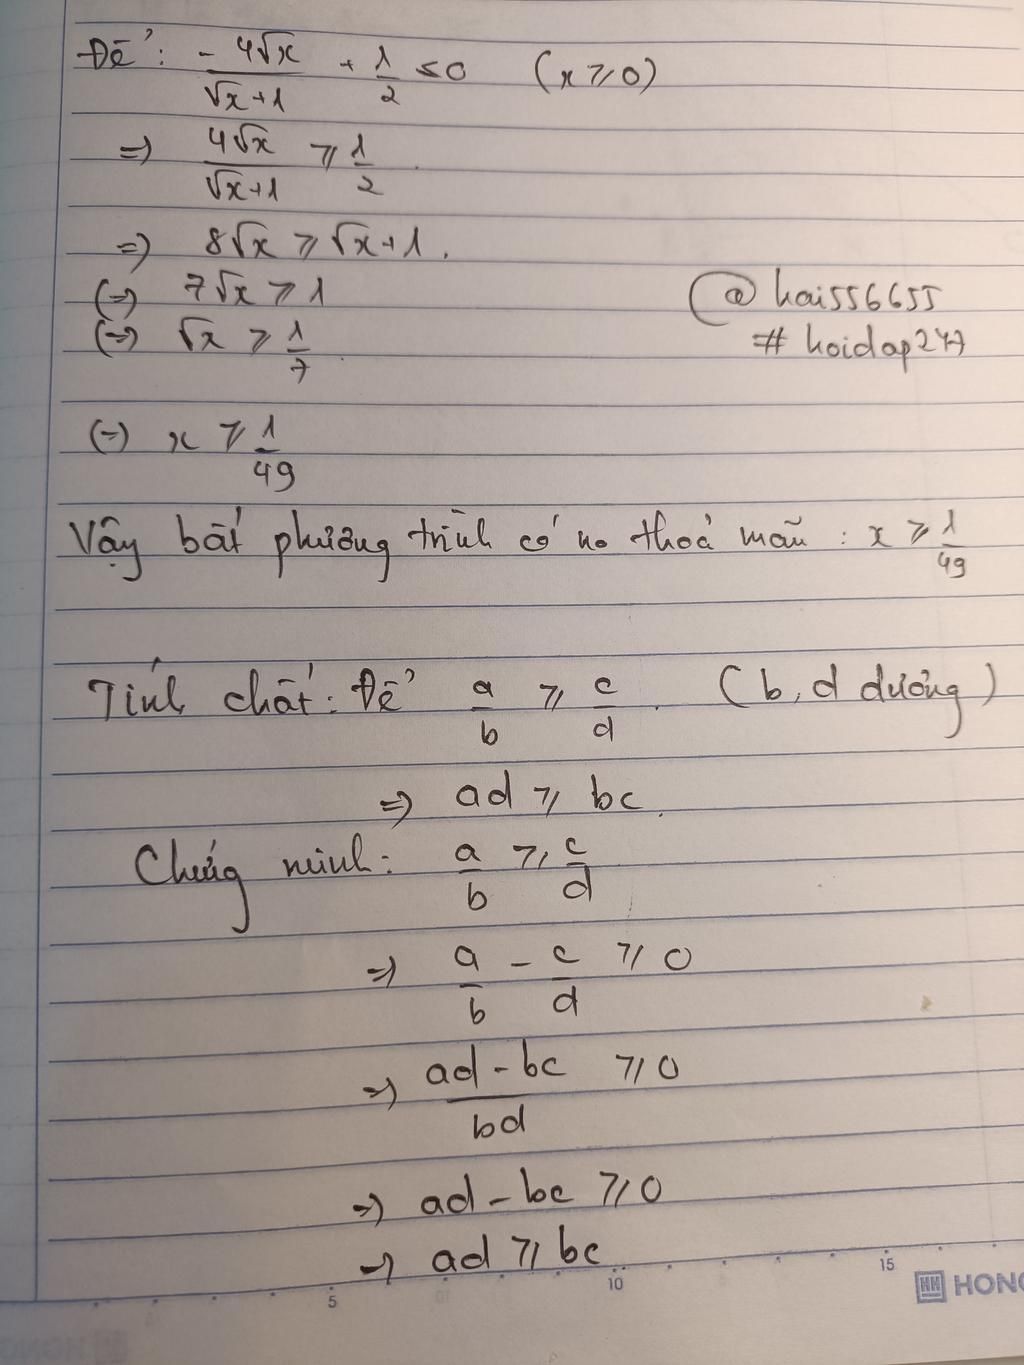 Để: -4√x/(√x+1) + 1/2 ≤ 0 (x ≥ 0)
=> 4√x/(√x+1) ≥ 1/2
=> 8√x ≥ √x+1.
(=) 7√x ≥ 1
@hai556655
(=) √x ≥ 1/7
#hoidap247
(=) x ≥ 1/49
Vậy bất phương trình có no thoả mãn: x ≥ 1/49
Tính chất: Để a/b ≥ c/d. (b, d dương)
=> ad ≥ bc.
Chứng minh: a/b ≥ c/d
=> a/b - c/d ≥ 0
=> (ad - bc)/bd ≥ 0
=> ad - bc ≥ 0
=> ad ≥ bc
5 10 15
HH HONG